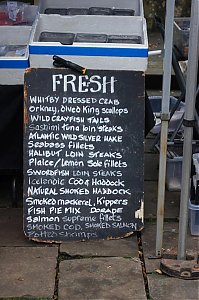 FRESH
WHITBY DRESSED CRAB
Orkney, dived King scallops
WILD CRAYFISH TAILS
Sashimi tuna loin steaks
ATLANTIC WILD SILVER HAKE
Seabass fillets
HALIBUT LOIN STEAKS
Plaice/Lemon Sole fillets
SWORDFISH LOIN STEAKS
Icelandic Cod & Haddock
NATURAL SMOKED HADDOCK
Smoked mackerel, Kippers
FISH PIE MIX DORADE
Salmon supreme fillets
SMOKED COD, SMOKED SALMON
Potted Shrimps